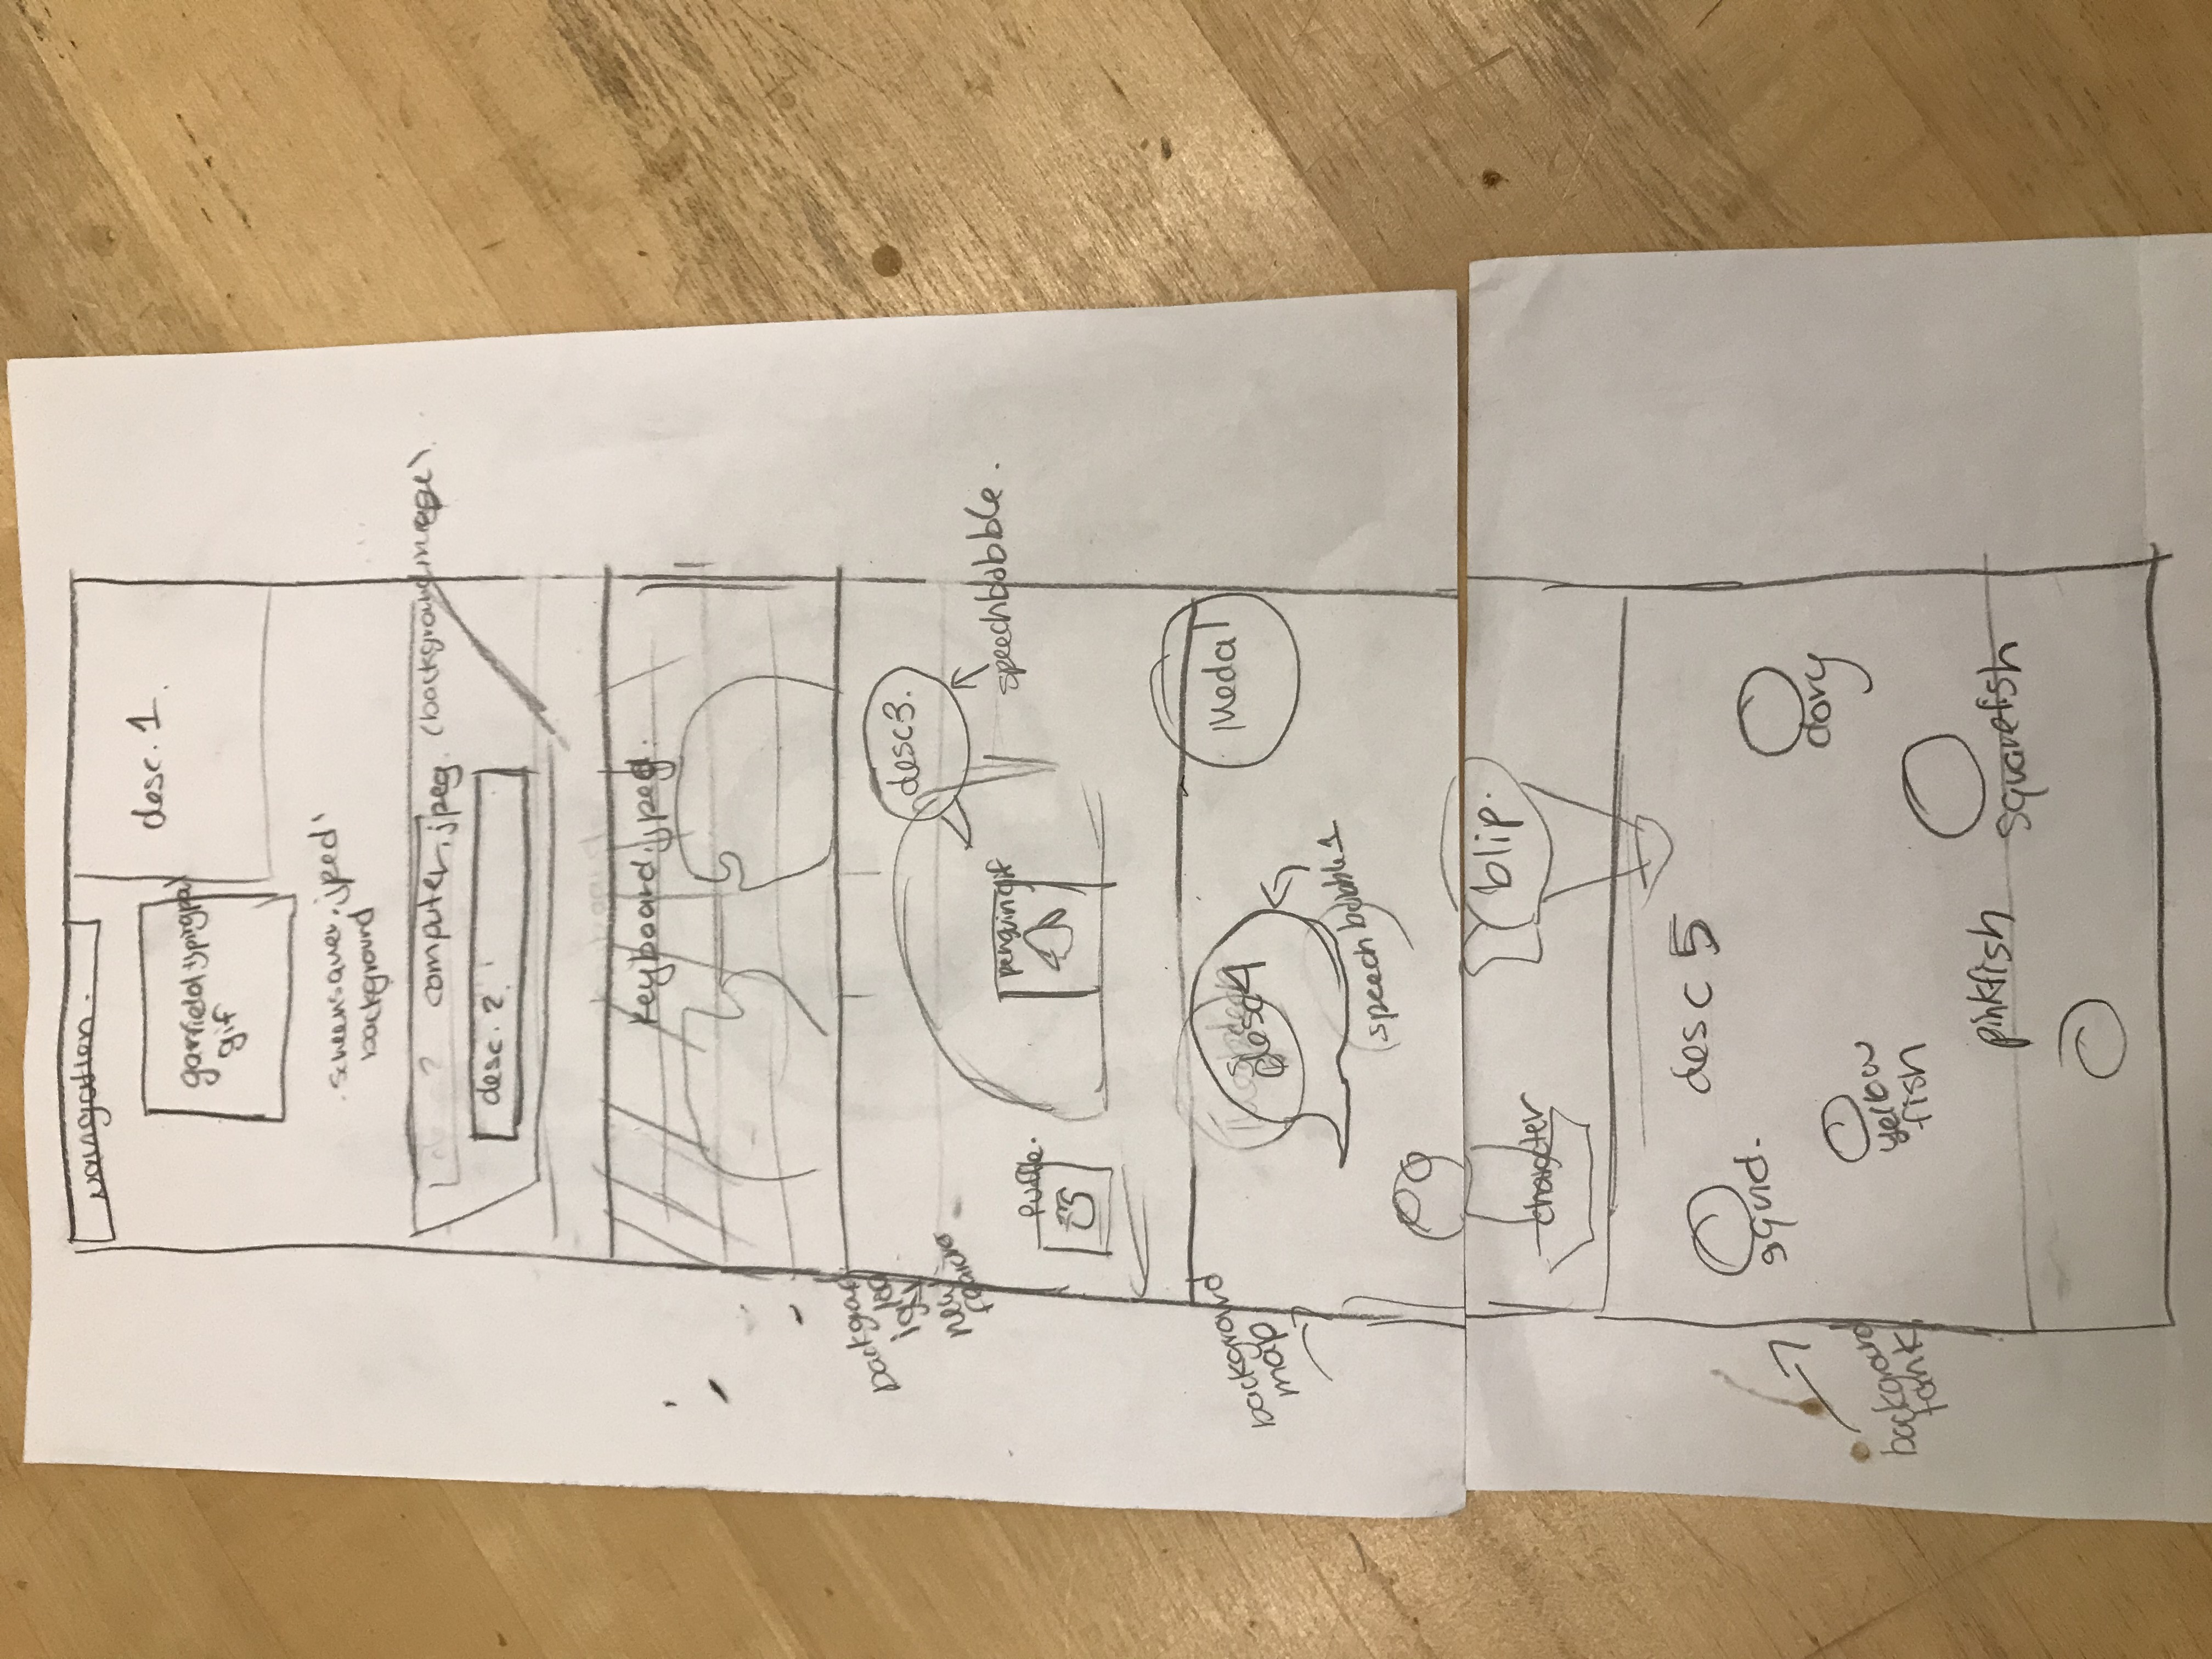 navigation.
desc. 1.
garfield typingpal
gif
screensaver.jped'
background
? computer.jpeg. (background image)
desc. 2.
keyboard.jpeg.
background
new
desc3.
speechbubble.
penguin gif
puffle.
background
map
desc4
Medal
speech bubble 1
blip.
character
desc 5
squid.
dory
yellow
fish
background
tank
pinkfish
squarefish